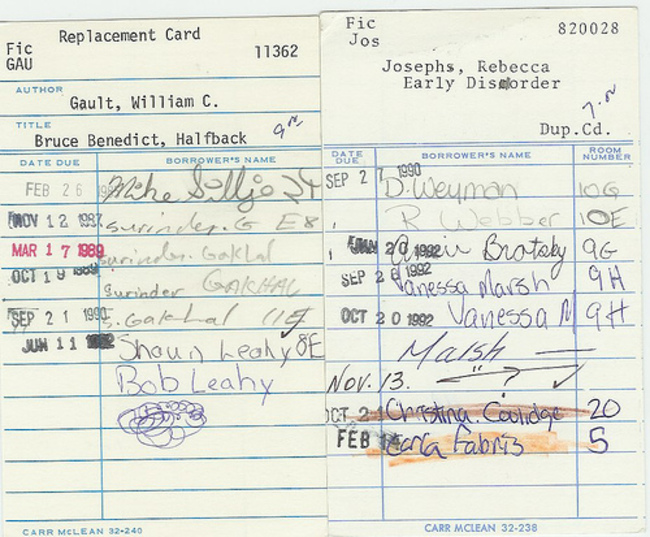 Replacement Card
Fic
GAU
11362
AUTHOR
Gault, William C.
TITLE
Bruce Benedict, Halfback
DATE DUE BORROWER'S NAME
FEB 26 Mike
NOV 12 1987 Surinder. G E8
MAR 17 1989 Surinder. Gakhal
OCT 19 1989 Surinder GAKHAL
SEP 21 1990 S. Gakhal 11E
JUN 11 Shaun Leahy 8E
Bob Leahy
CARR McLEAN 32-240
Fic
Jos
820028
Josephs, Rebecca
Early Disorder
7.00
Dup.Cd.
DATE DUE BORROWER'S NAME ROOM NUMBER
SEP 27 1990 D. Weyman 10G
R Webber 10E
JAN 20 1992 Bratsky 9G
SEP 28 1992 Vanessa Marsh 9H
OCT 20 1992 Vanessa M 9H
Marsh —
Nov. 13. ?
OCT 21 Christina. Coolidge 20
FEB Carla Fabris 5
CARR McLEAN 32-238